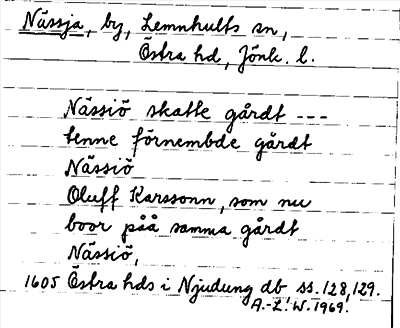 Nässja, by, Lemnhults sn,
Östra hd, Jönk. l.
Nässiö skatte gårdt ---
tenne förnembde gårdt
Nässiö
Oluff Karssonn, som nu
boor påå samma gårdt
Nässiö,
1605 Östra hds i Njudung db ss. 128, 129.
A.-L. W. 1969.